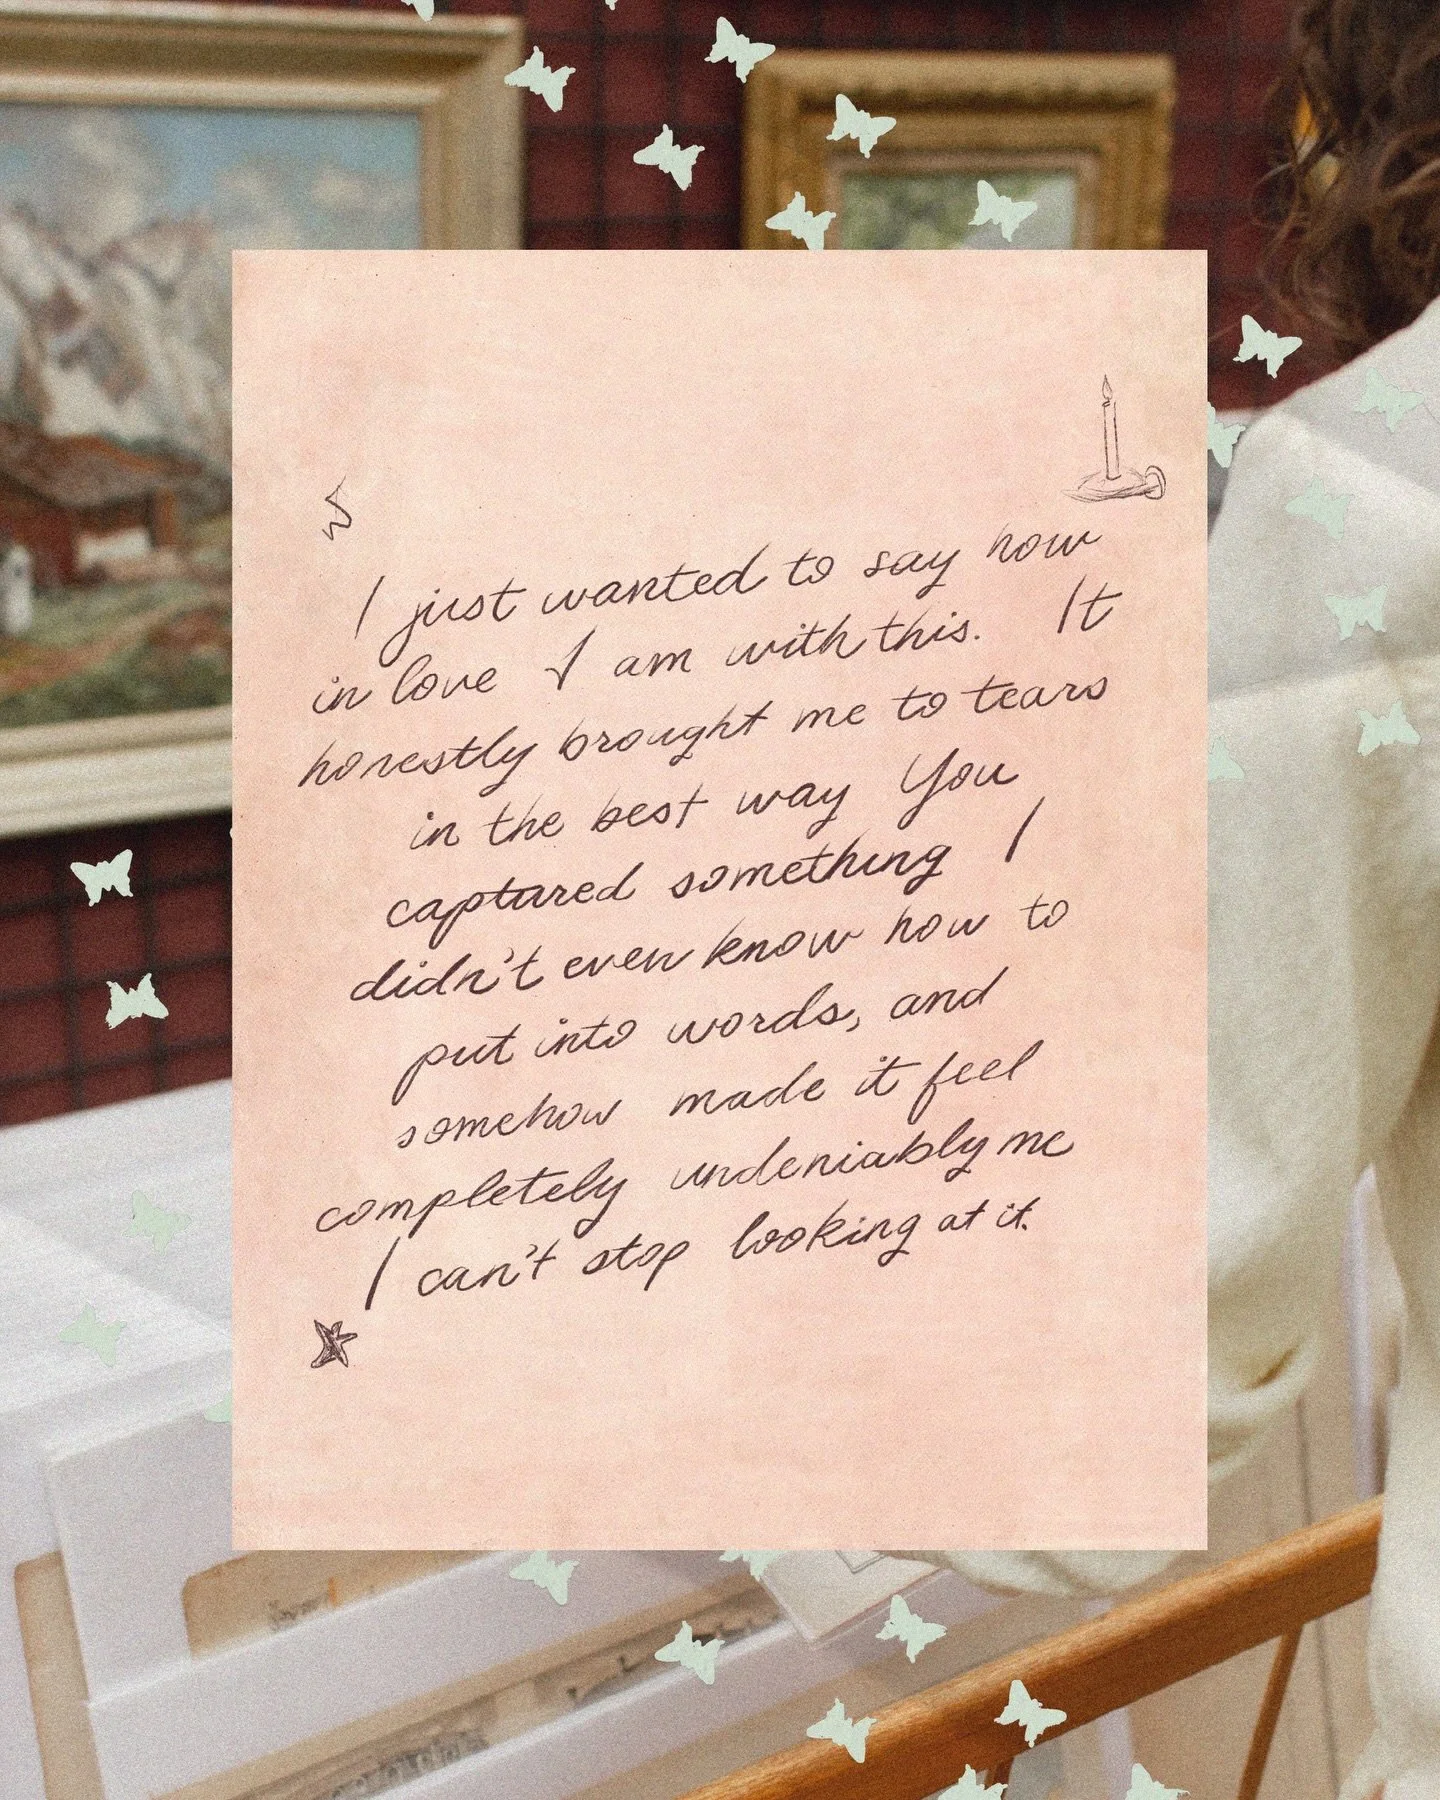 I just wanted to say how
in love I am with this. It
honestly brought me to tears
in the best way You
captured something I
didn't even know how to
put into words, and
somehow made it feel
completely undeniably me
I can't stop looking at it.